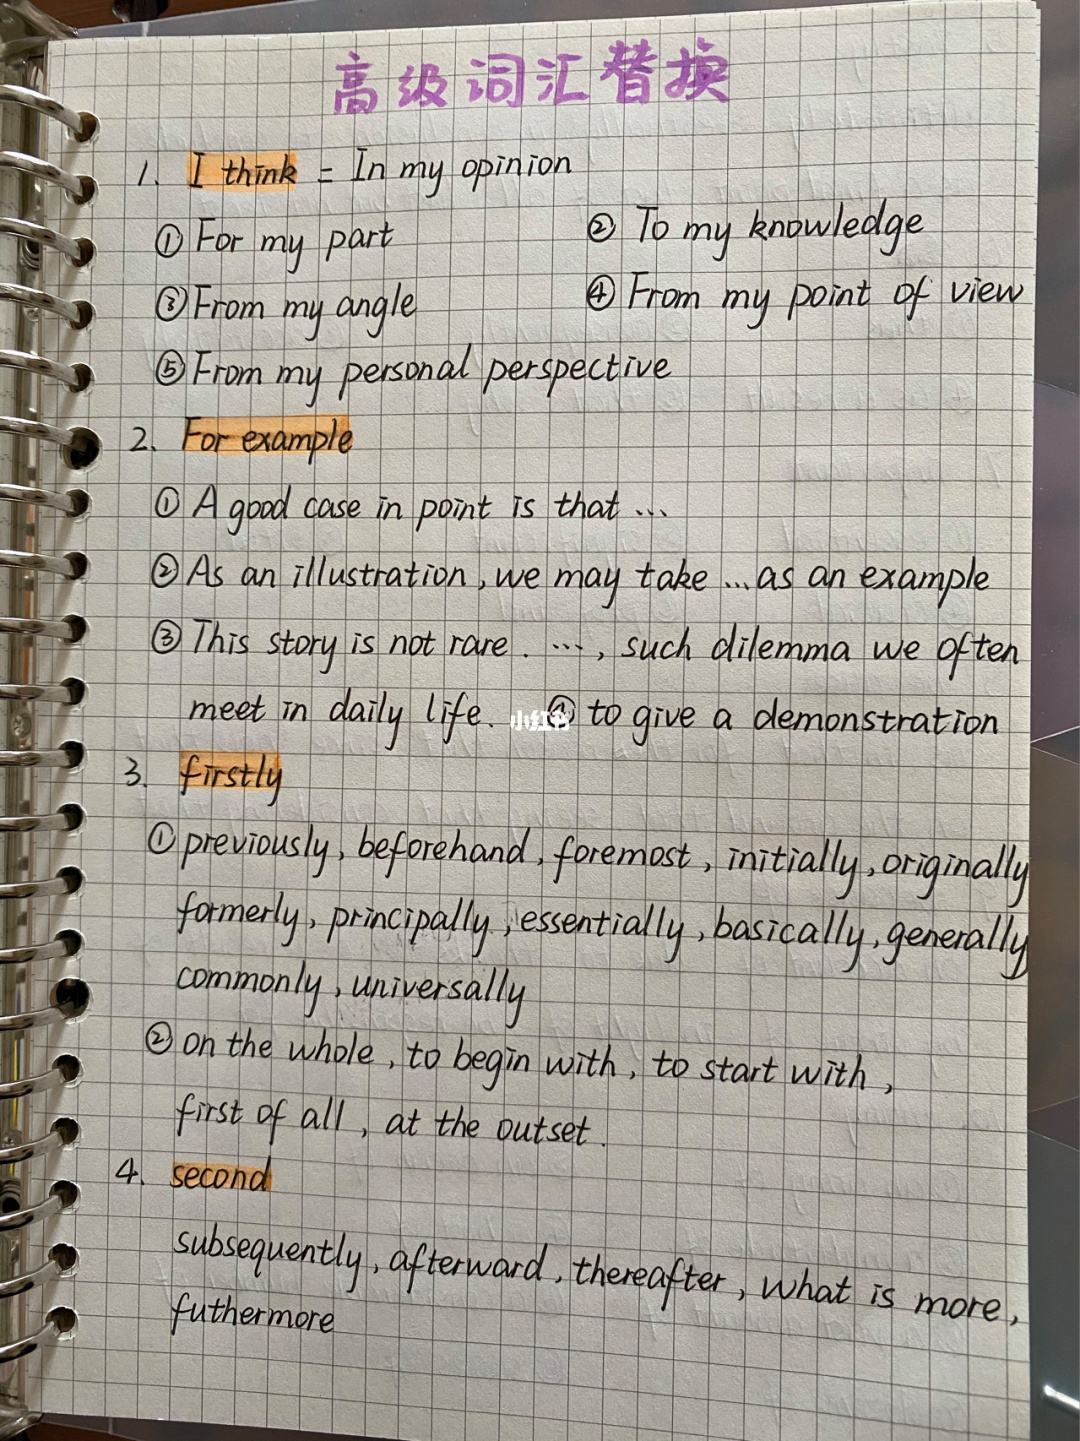 高级词汇替换
1. I think = In my opinion
① For my part ② To my knowledge
③ From my angle ④ From my point of view
⑤ From my personal perspective
2. For example
① A good case in point is that ...
② As an illustration, we may take ... as an example
③ This story is not rare. ..., such dilemma we often
meet in daily life. ④ to give a demonstration
小红书
3. firstly
① previously, beforehand, foremost, initially, originally
formerly, principally, essentially, basically, generally
commonly, universally
② on the whole, to begin with, to start with,
first of all, at the outset.
4. second
subsequently, afterward, thereafter, what is more,
futhermore